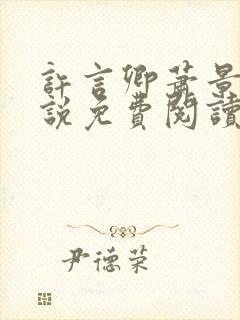 許言卿蕭景
說免費閱讀
尹德荣